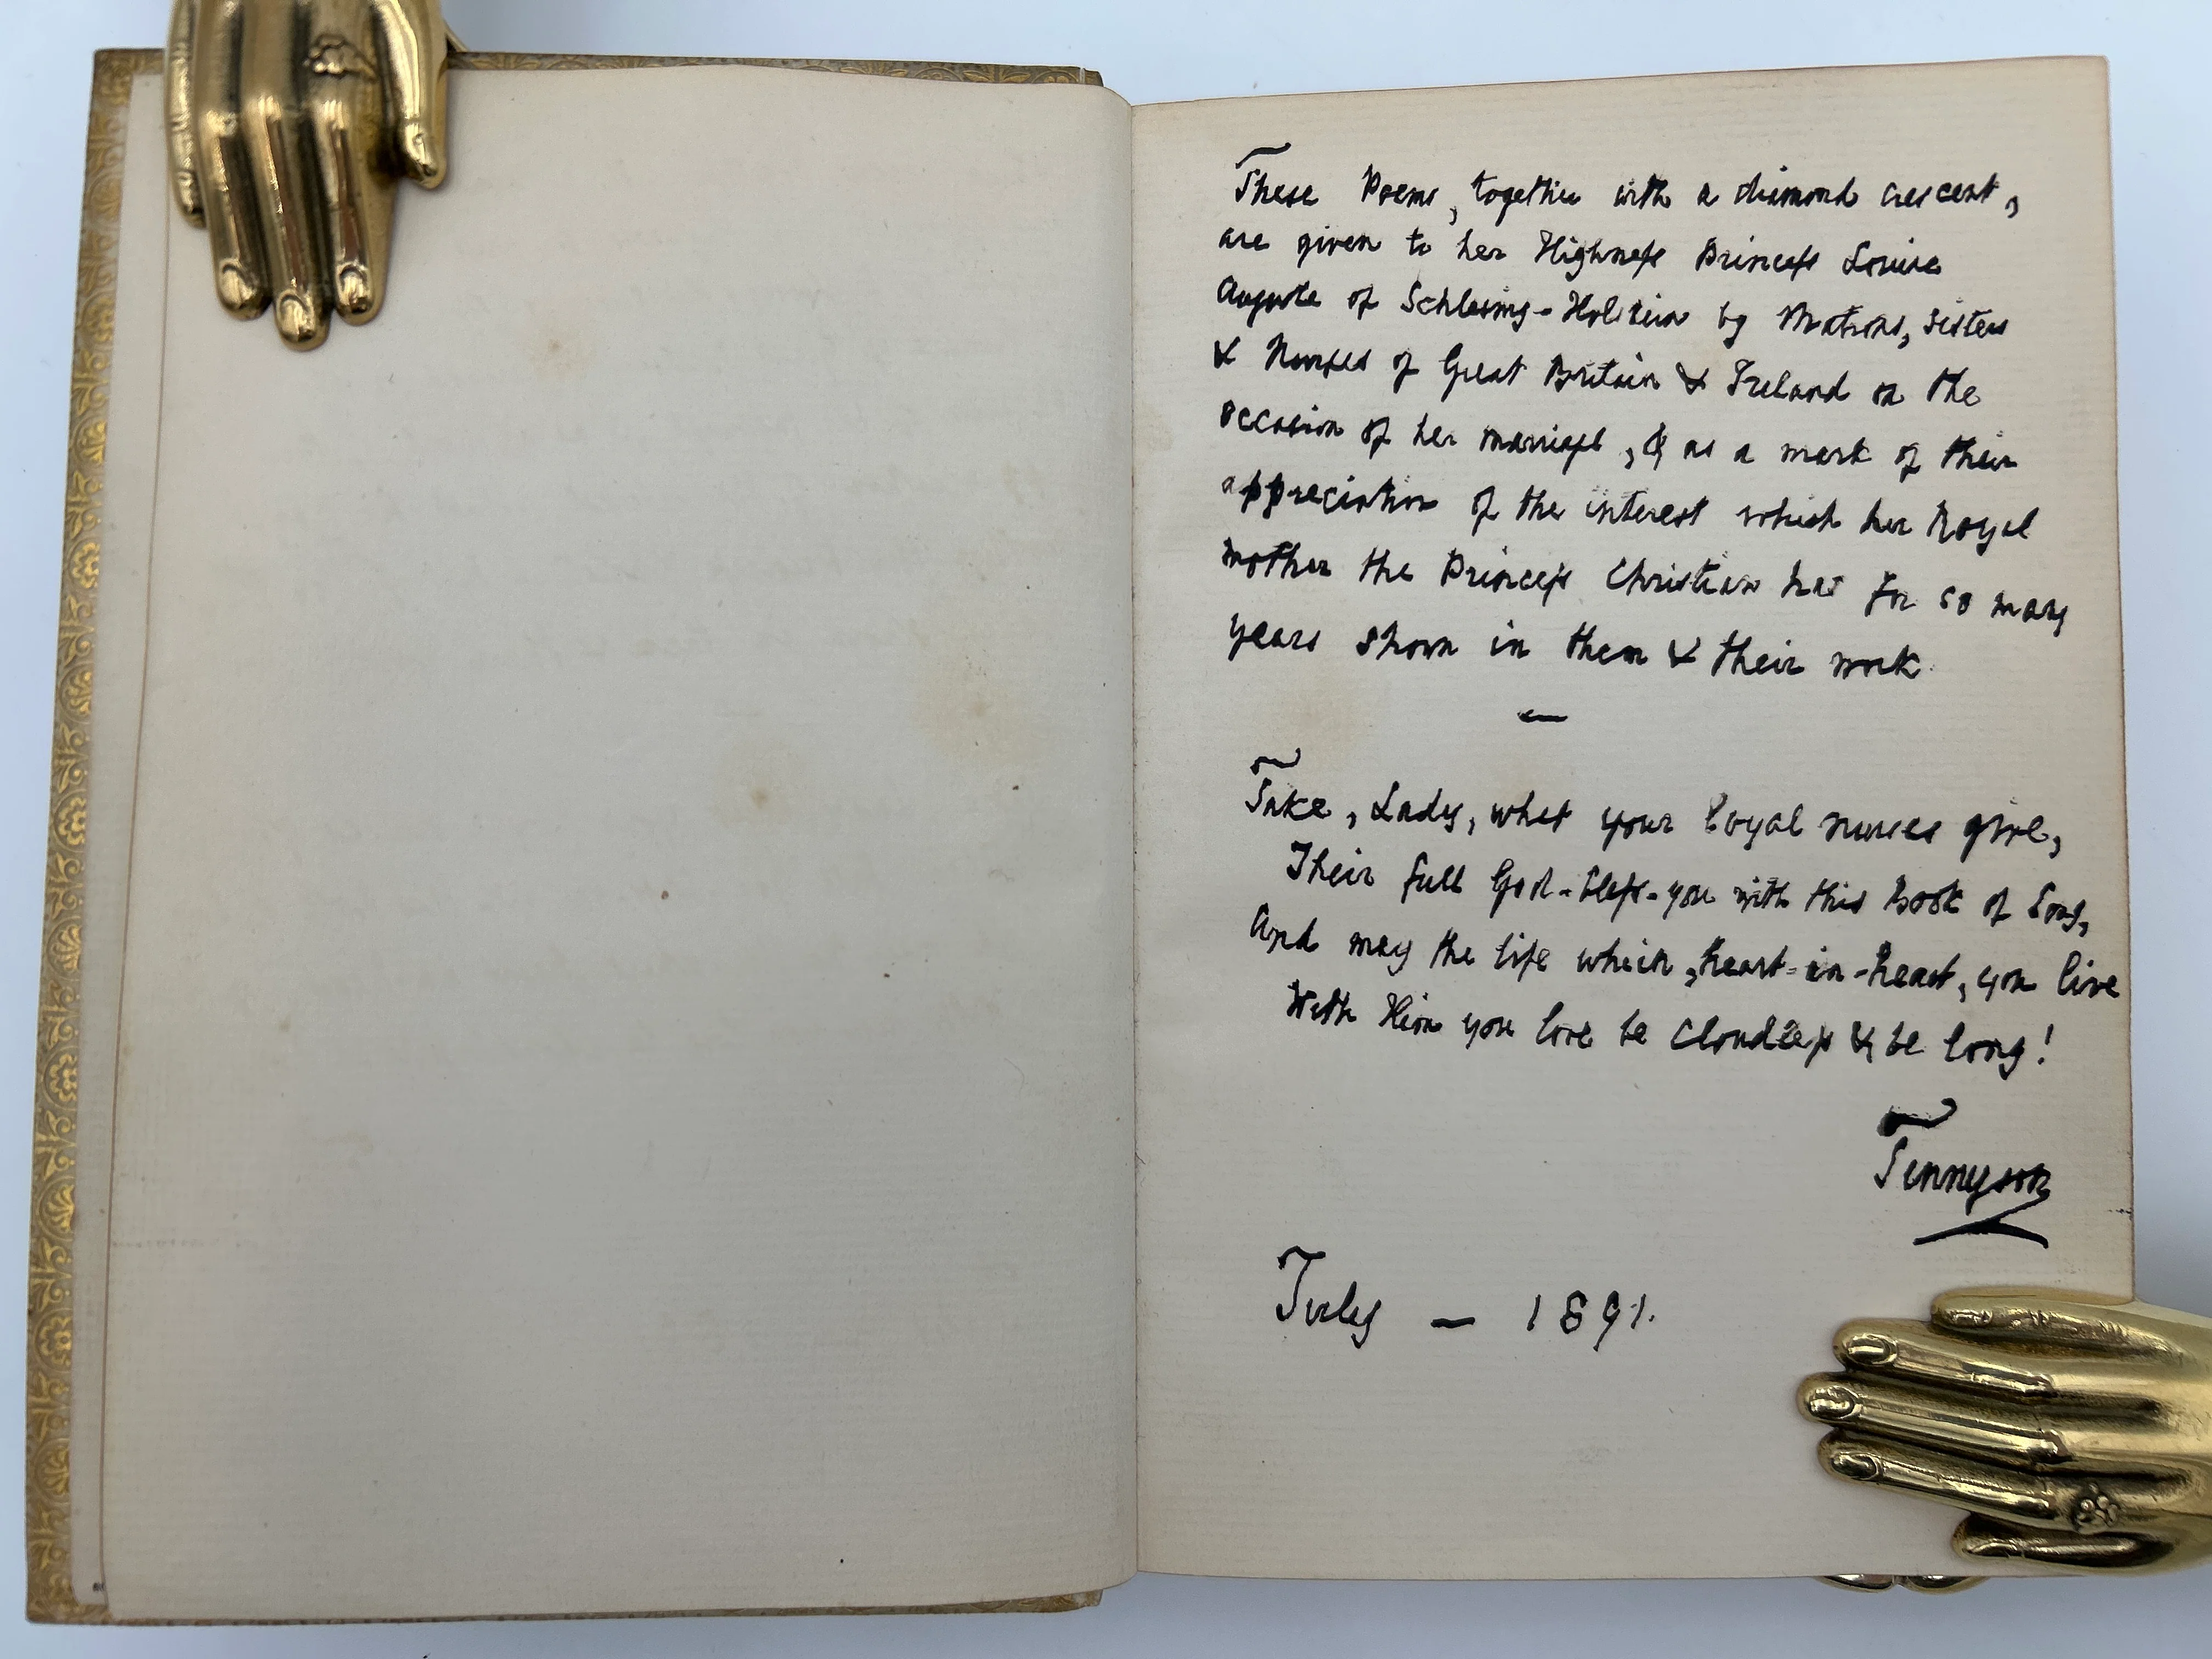 These Poems, together with a diamond crescent,
are given to her Highness Princess Louise
Auguste of Schleswig-Holstein by Matrons, Sisters
& Nurses of Great Britain & Ireland on the
occasion of her marriage, & as a mark of their
appreciation of the interest which her Royal
mother the Princess Christian has for so many
years shown in them & their work
—
Take, Lady, what your loyal nurses give,
Their full God-bless-you with this Book of Song,
And may the life which, heart-in-heart, you live
With Him you love be cloudless & be long!
Tennyson
July — 1891.